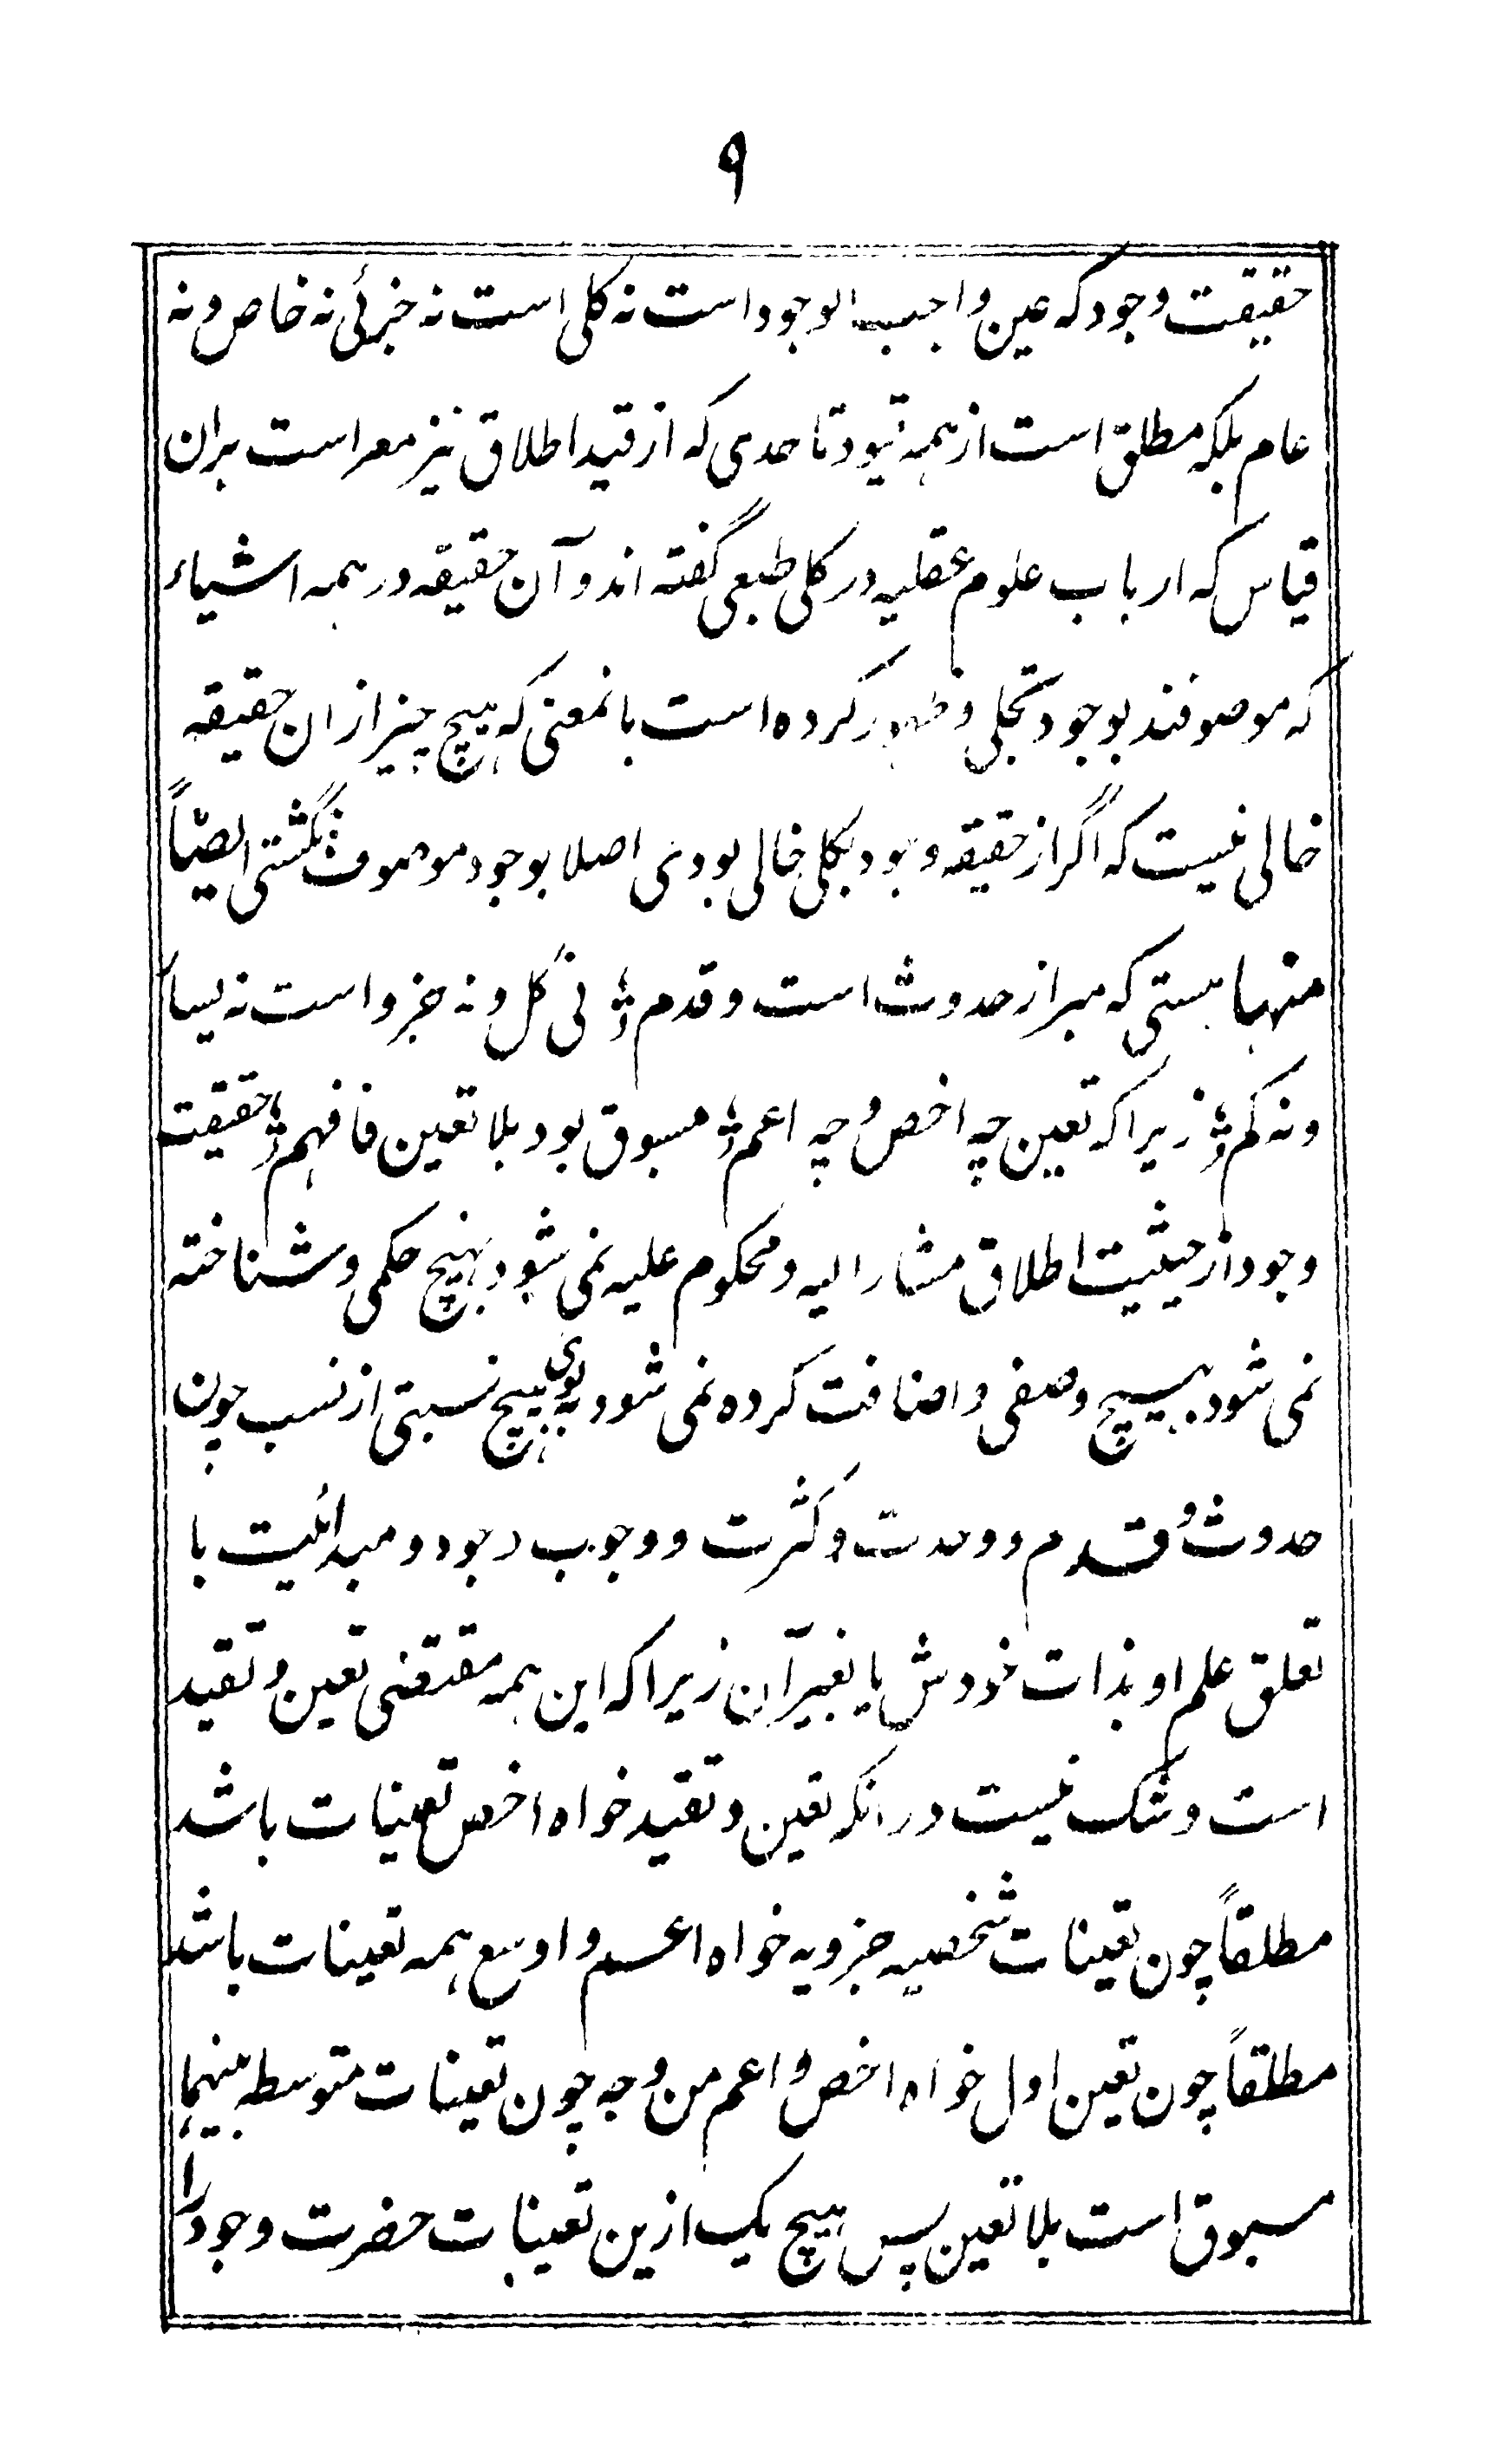 ۹
حقیقت وجود که عین واجب الوجود است نه کلی است نه جزئی نه خاص و نه
عام بلکه مطلق است از همه قیود تا حدی که از قید اطلاق نیز معراست بران
قیاس که ارباب علوم عقلیه در کلی طبعی گفته اند و آن حقیقه در همه اشیاء
که موصوفند بوجود تجلی و ظهور کرده است بانمعنی که هیچ چیز ازان حقیقه
خالی نیست که اگر از حقیقه وجود بکلی خالی بودی اصلا بوجود موصوف نگشتی ایضاً
منها هستی که مبرا ز حدوث است و قدم نی کل و نه جزو است نه بسیا
و نه کم زیرا که تعین چه اخص و چه اعم مسبوق بود بلا تعین فافهم حقیقت
وجود از حیثیت اطلاق مشار الیه و محکوم علیه نمی شود بهیچ حکمی و شناخته
نمی شود بهیچ وصفی و اضافت کرده نمی شود بوی هیچ نسبتی از نسب چون
حدوث و قدم و وحدت و کثرت و وجوب وجود و مبدائیت با
تعلق علم او بذات خودش یا بغیر آن زیرا که این همه مقتضی تعین و تقید
است و شک نیست در انکه تعین و تقید خواه اخص تعینات باشد
مطلقاً چون تعینات شخصیه جزویه خواه اعم و اوسع همه تعینات باشد
مطلقاً چون تعین اول خواه اخص و اعم من وجه چون تعینات متوسطه بینهما
مسبوق است بلا تعین پس هیچ یک ازین تعینات حضرت وجود را